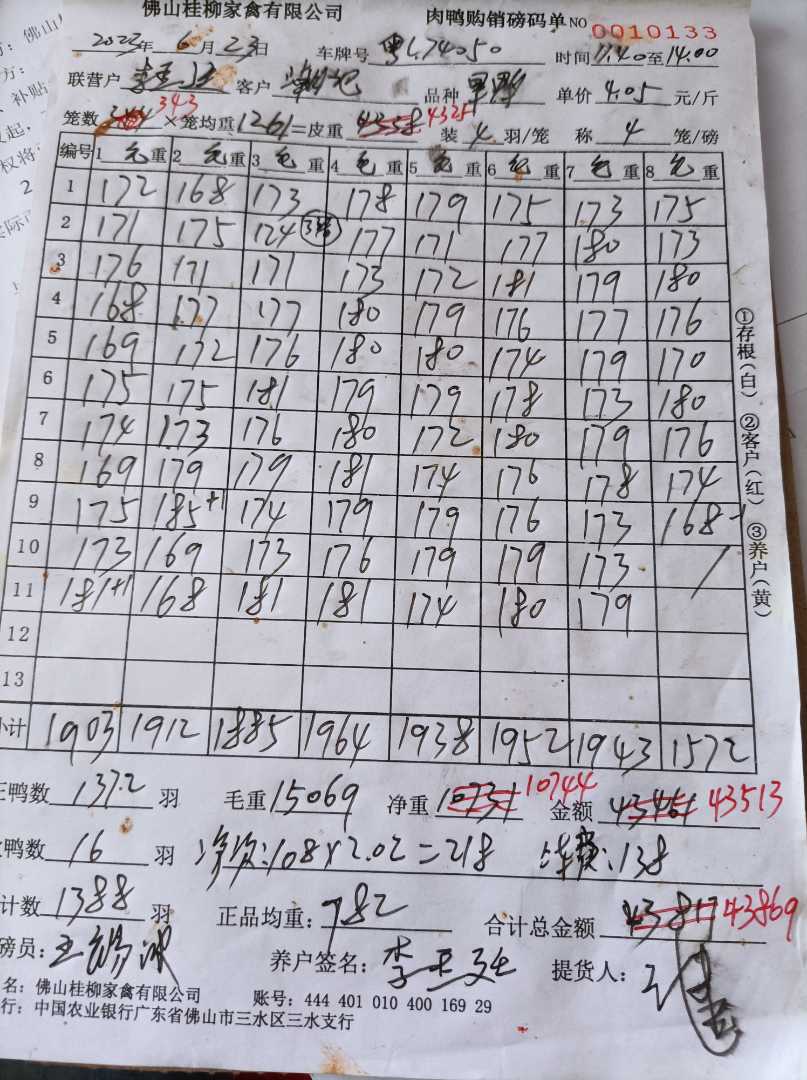 佛山桂柳家禽有限公司 肉鸭购销磅码单 NO 0010133
2023年 6月 23日 车牌号 粤L74050 时间 11.40 至 14.00
联营户 客户 品种 单价 4.05 元/斤
笼数 344 343 ×笼均重 12.61 =皮重 4338 4325 装 4 羽/笼 称 4 笼/磅
编号 1 毛重 2 毛重 3 毛重 4 毛重 5 毛重 6 毛重 7 毛重 8 毛重
1 172 168 173 178 179 175 173 175
2 171 175 124 3笼 177 171 177 180 173
3 176 171 171 173 172 181 179 180
4 168 177 177 180 179 176 177 176
5 169 172 176 180 180 174 179 170
6 175 175 181 179 179 178 173 180
7 174 173 176 180 172 180 179 176
8 169 179 179 181 174 176 178 174
9 175 185+1 174 179 179 176 173 168-1
10 173 169 173 176 179 179 173 /
11 181+1 168 181 181 174 180 179
12
13
小计 1903 1912 1885 1964 1938 1952 1943 1572
正鸭数 1372 羽 毛重 15069 净重 10731 10744 金额 43461 43513
鸭数 16 羽 108×2.02=218 费:138
计数 1388 羽 正品均重: 782 合计总金额 43817 43869
磅员: 养户签名: 提货人:
名: 佛山桂柳家禽有限公司 账号: 444 401 010 400 169 29
行: 中国农业银行广东省佛山市三水区三水支行
①存根(白) ②客户(红) ③养户(黄)